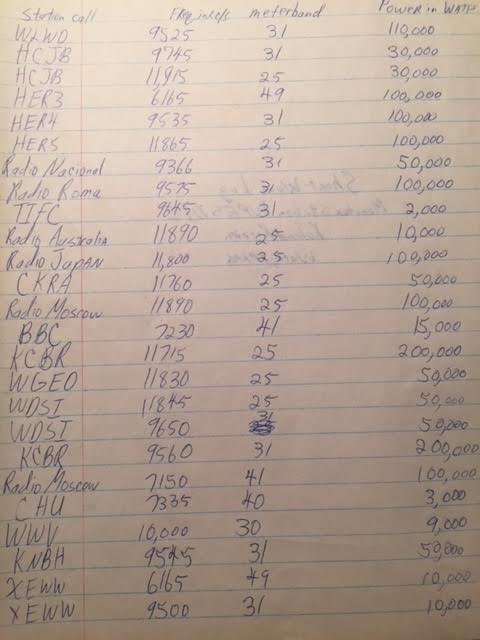 Station call Freq in kc/s meterband Power in WATTS
WLWO 9525 31 110,000
HCJB 9745 31 30,000
HCJB 11,915 25 30,000
HER3 6165 49 100,000
HER4 9535 31 100,000
HER5 11865 25 100,000
Radio Nacional 9366 31 50,000
Radio Roma 9575 31 100,000
TIFC 9645 31 2,000
Radio Australia 11890 25 10,000
Radio JAPAN 11,800 25 100,000
CKRA 11760 25 50,000
Radio Moscow 11890 25 100,000
BBC 7230 41 15,000
KCBR 11715 25 200,000
WGEO 11830 25 50,000
WDSI 11845 25 50,000
WDSI 9650 31 50,000
KCBR 9560 31 200,000
Radio Moscow 7150 41 100,000
CHU 7335 40 3,000
WWV 10,000 30 9,000
KNBH 9545 31 50,000
XEWW 6165 49 10,000
XEWW 9500 31 10,000